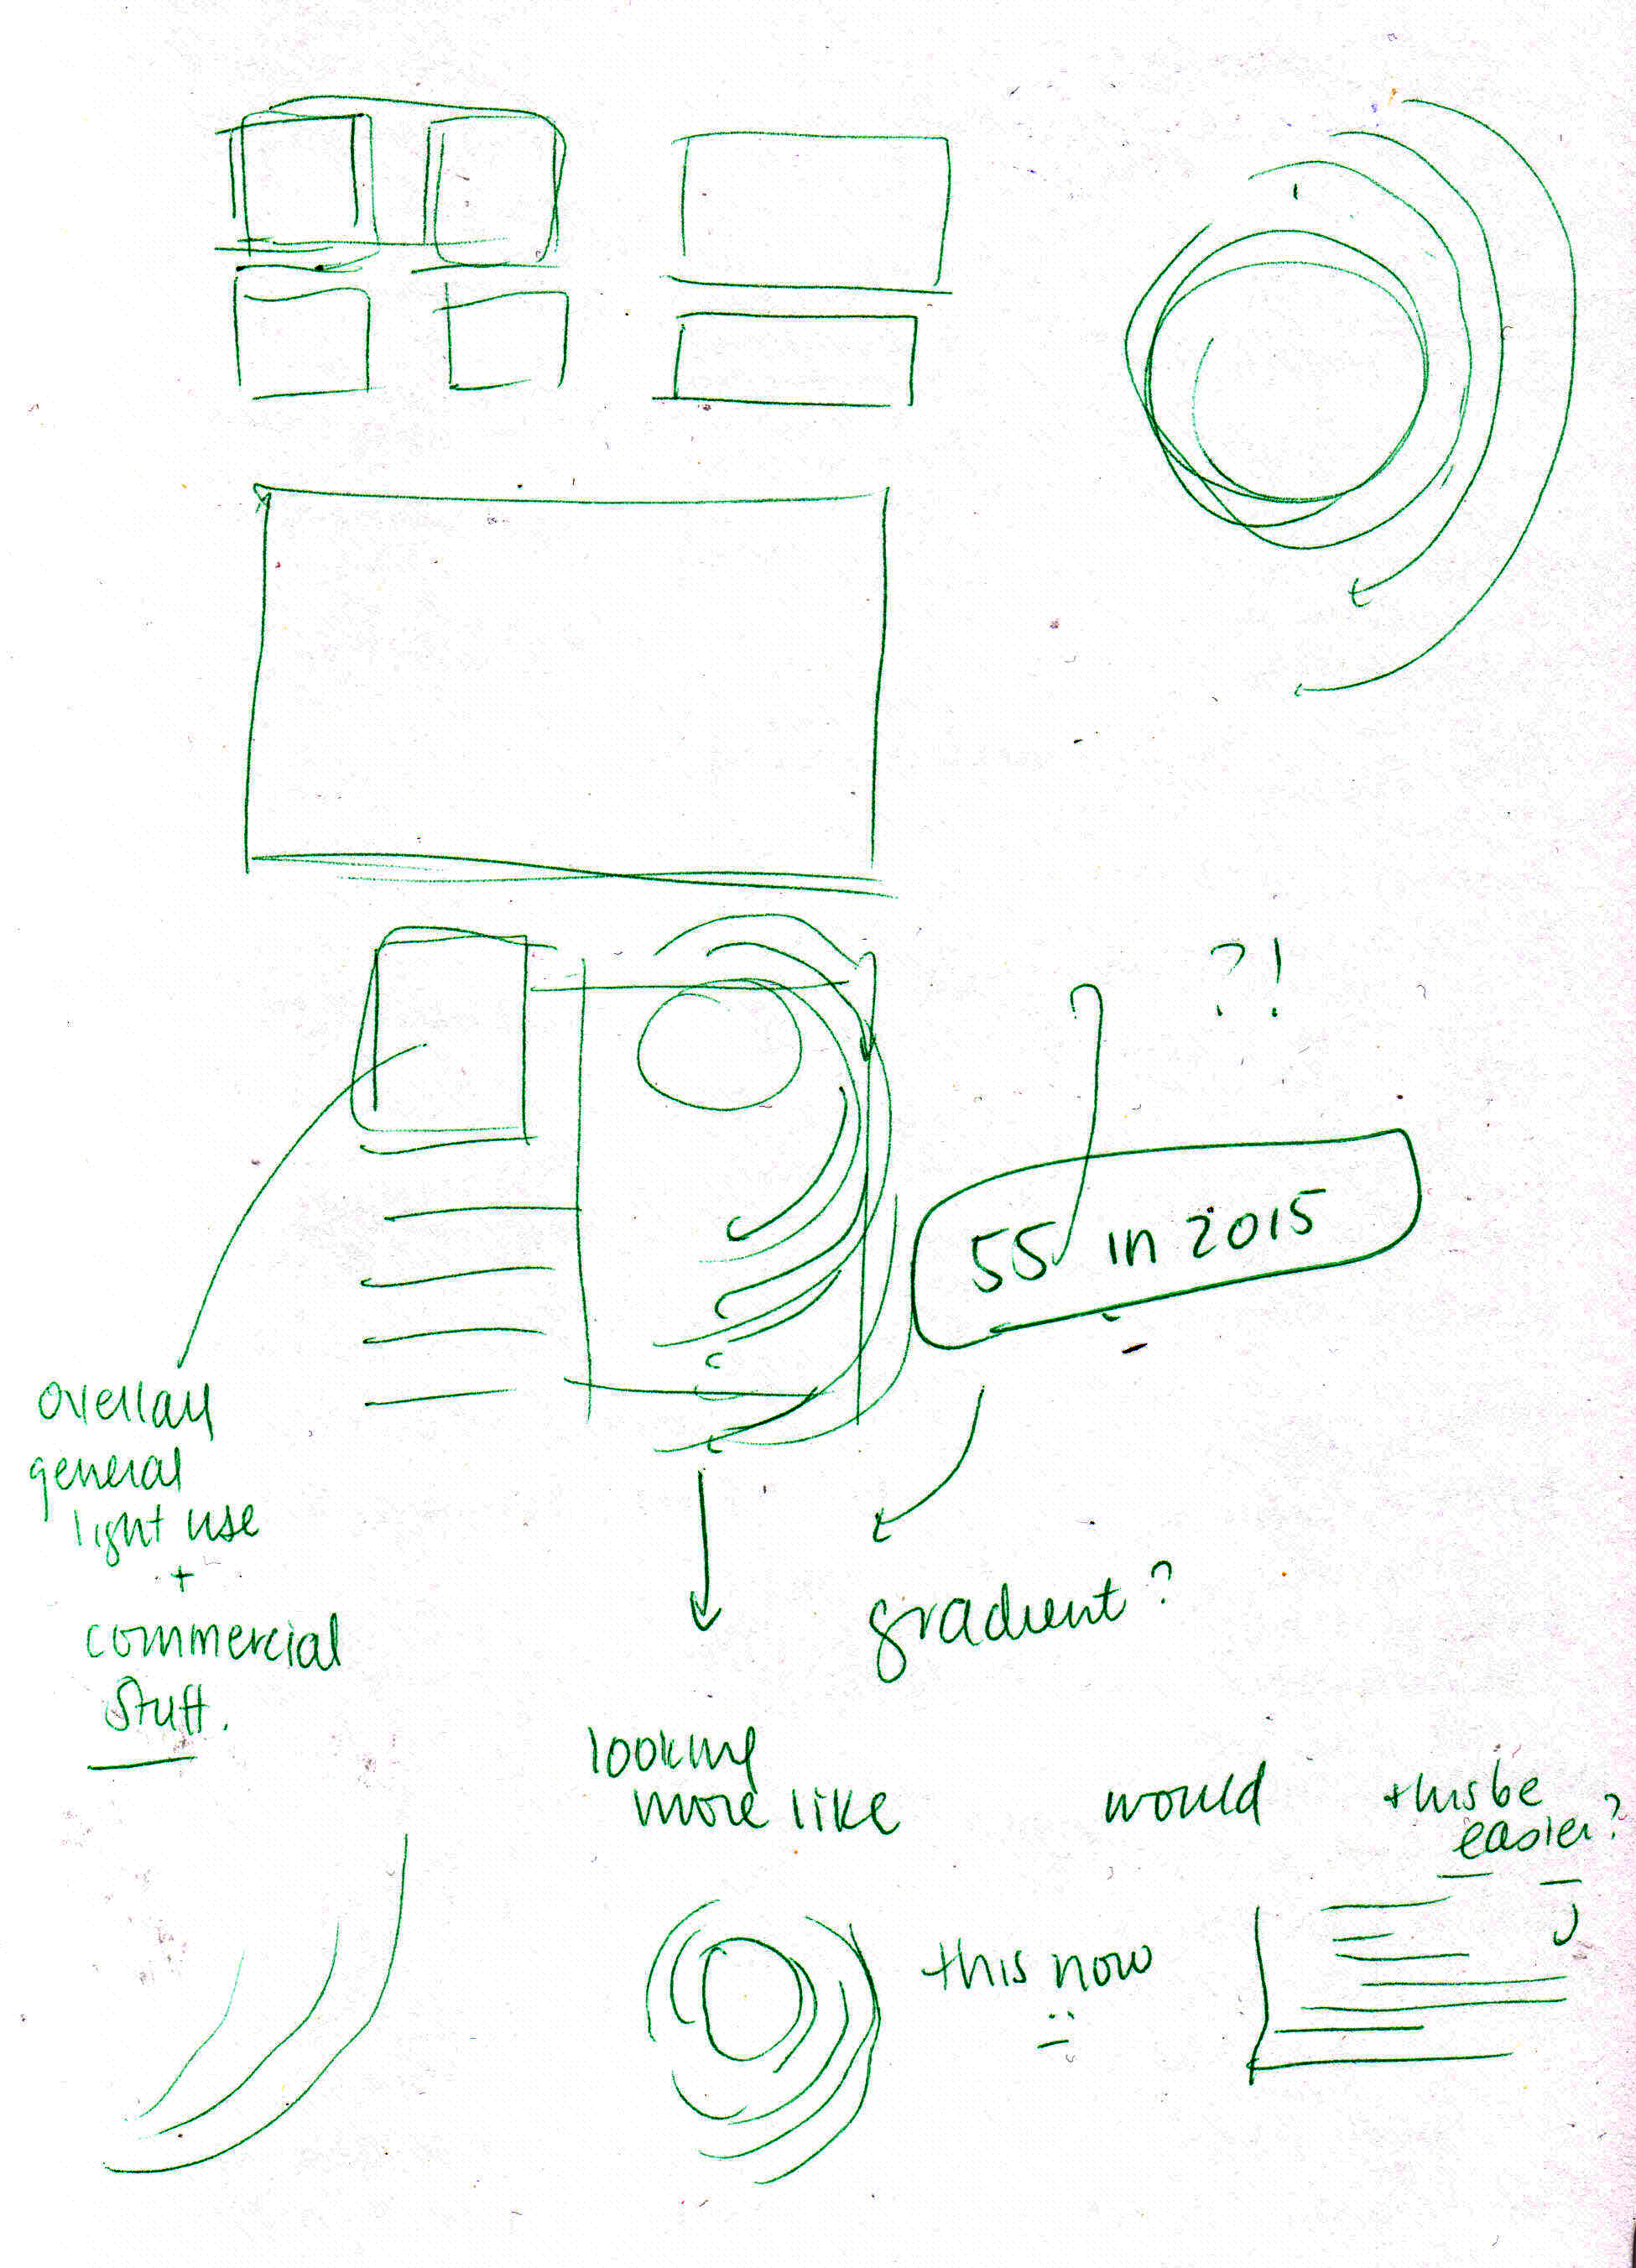 ?!
55 in 2015
overlay
general
light use
+
commercial
stuff.
gradient?
looking
more like
would this be
easier?
this now